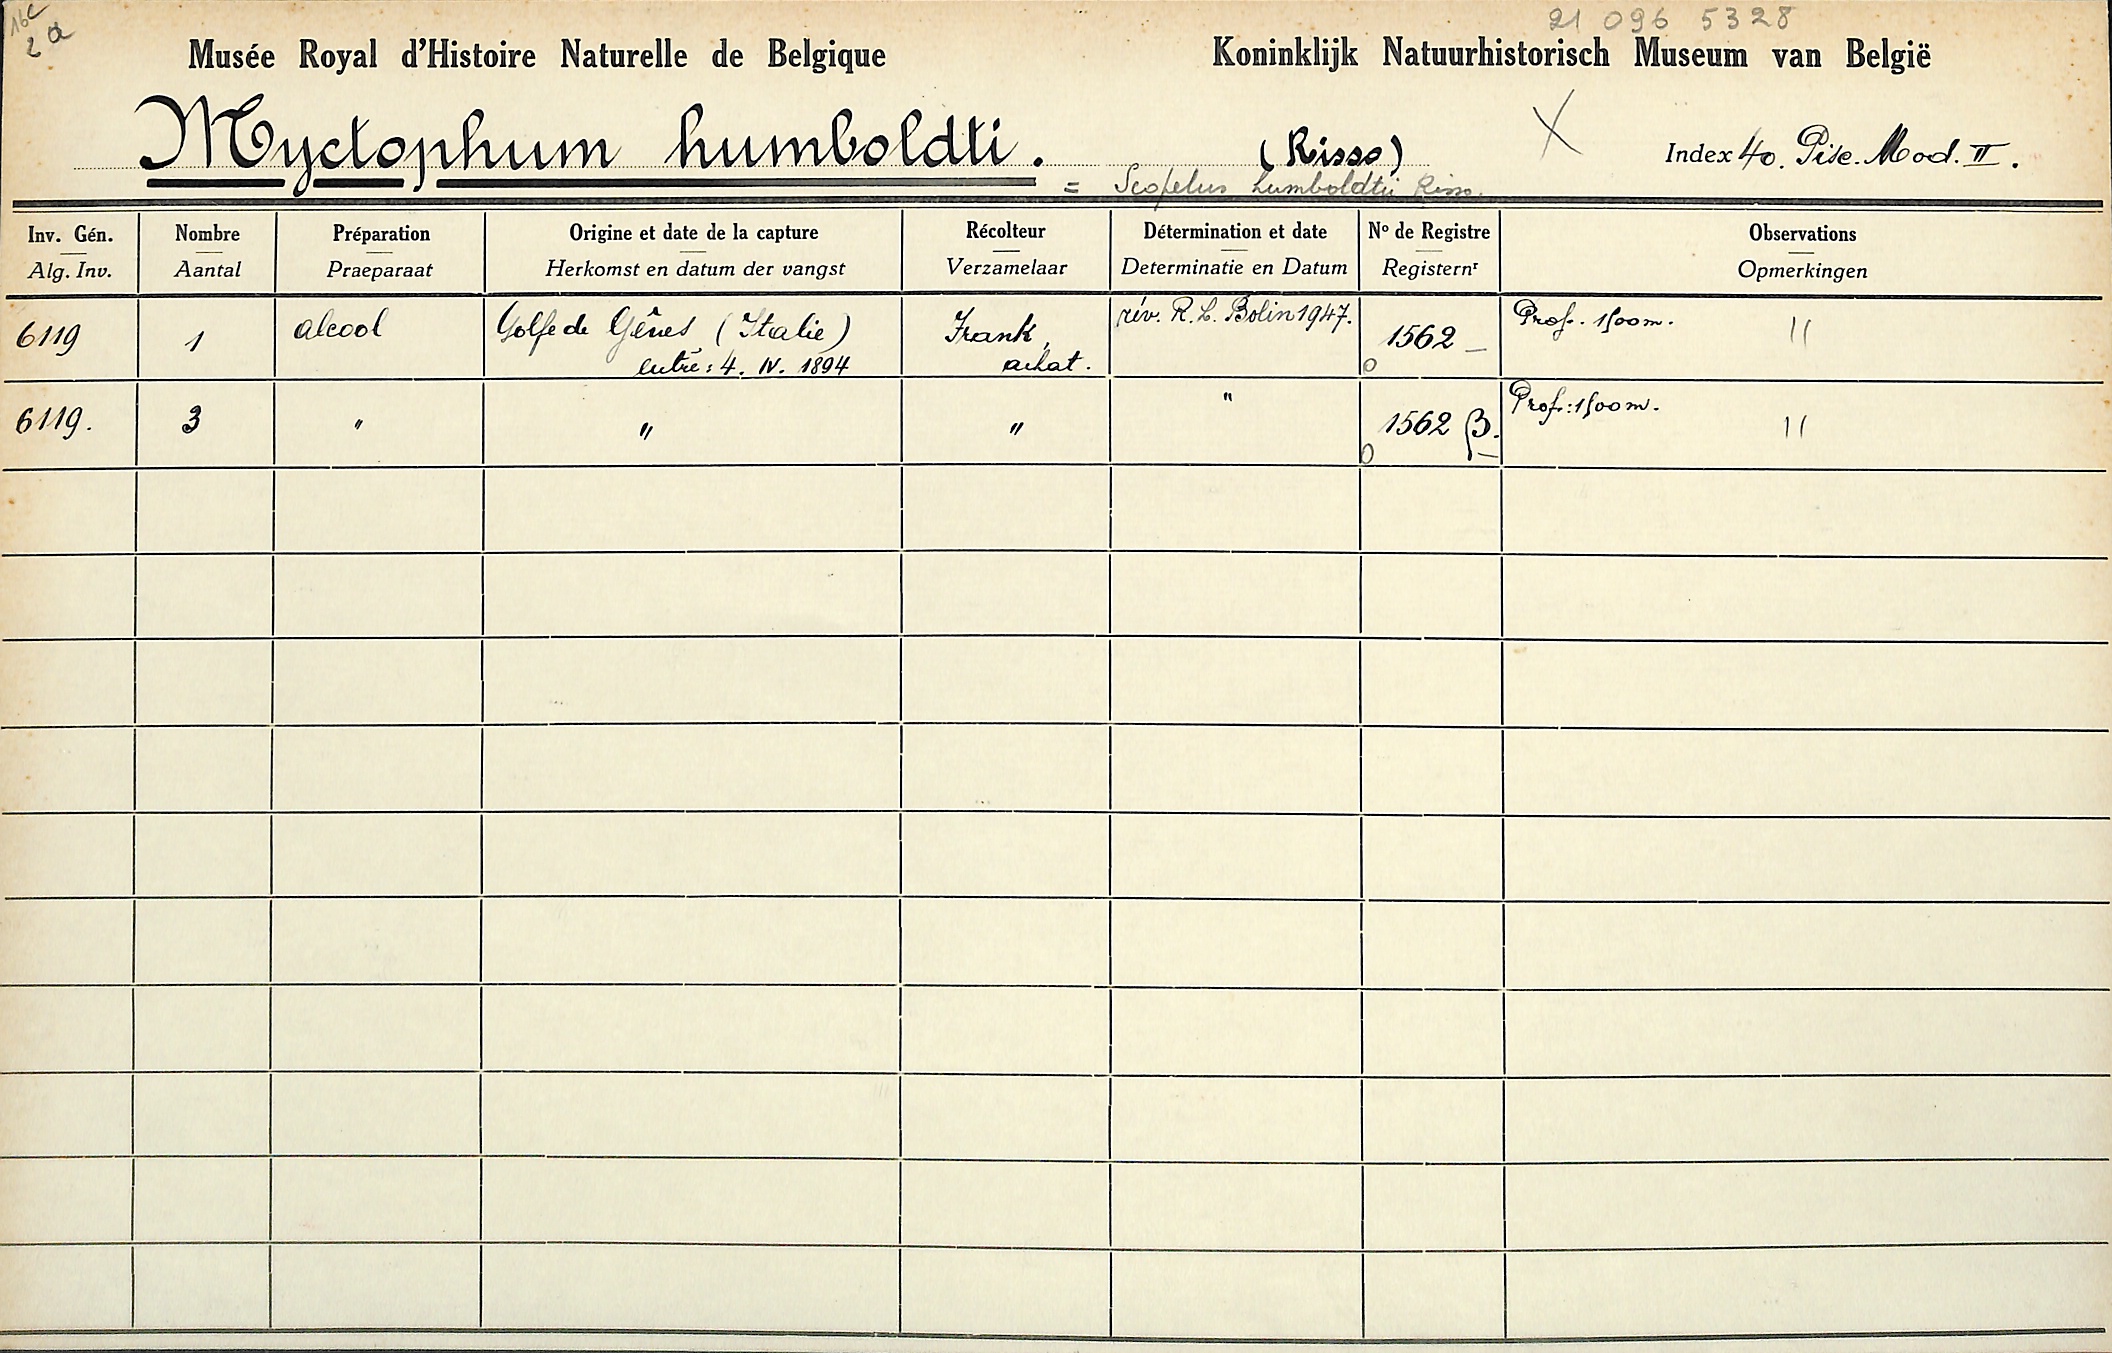 16c
2a
21 096 5328
Musée Royal d'Histoire Naturelle de Belgique Koninklijk Natuurhistorisch Museum van België
Myctophum humboldti. (Risso) X Index 40. Pisc. Mod. II.
= Scopelus humboldtii Risso.
Inv. Gén. Nombre Préparation Origine et date de la capture Récolteur Détermination et date No de Registre Observations
Alg. Inv. Aantal Praeparaat Herkomst en datum der vangst Verzamelaar Determinatie en Datum Registernr Opmerkingen
6119 1 alcool Golfe de Gênes (Italie) Frank, rév. R. L. Bolin 1947. 1562 – Prof. 1500 m. "
entré: 4. IV. 1894 achat. 0
6119. 3 " " " " 1562 β. Prof.: 1500 m. "
0